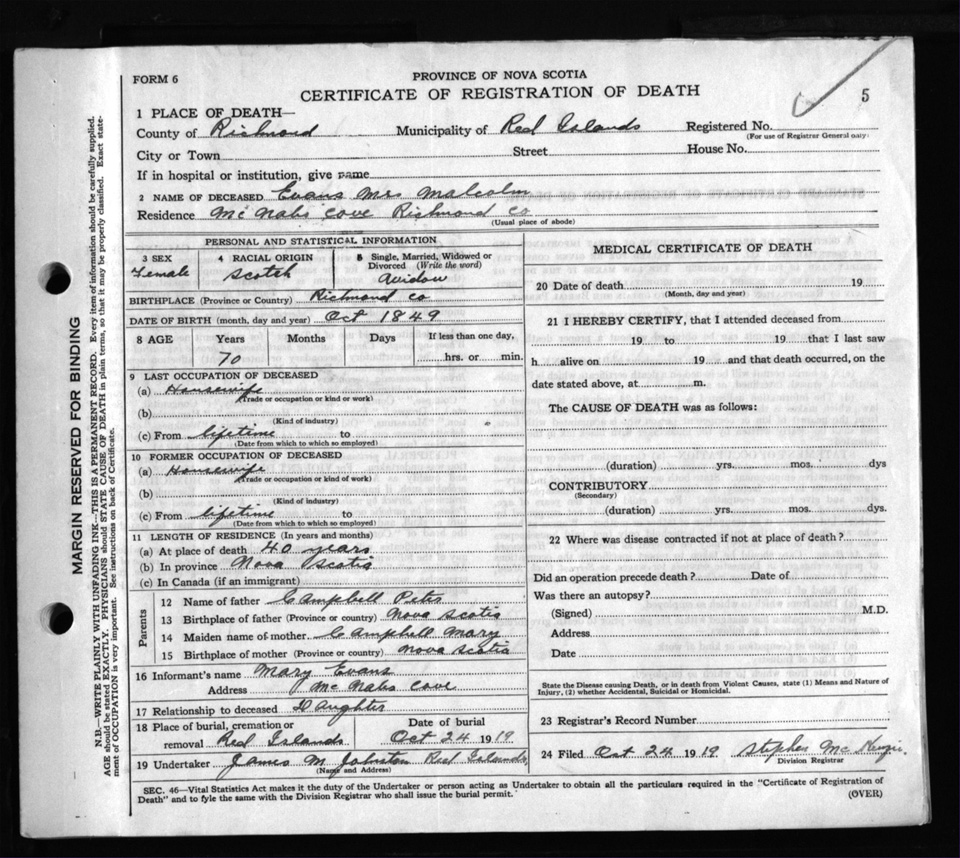 PROVINCE OF NOVA SCOTIA
FORM 6
CERTIFICATE OF REGISTRATION OF DEATH
5
1 PLACE OF DEATH—
County of Richmond Municipality of Red Islands Registered No.
(For use of Registrar General only)
City or Town Street House No.
If in hospital or institution, give name
2 NAME OF DECEASED Evans Mrs Malcolm
Residence McNabs Cove Richmond Co
(Usual place of abode)
PERSONAL AND STATISTICAL INFORMATION
3 SEX 4 RACIAL ORIGIN 5 Single, Married, Widowed or Divorced (Write the word)
Female Scotch Widow
BIRTHPLACE (Province or Country) Richmond Co
DATE OF BIRTH (month, day and year) Oct 1849
8 AGE Years Months Days If less than one day,
70 hrs. or min.
9 LAST OCCUPATION OF DECEASED
(a) Housewife
(Trade or occupation or kind or work)
(b)
(Kind of industry)
(c) From lifetime to
(Date from which to which so employed)
10 FORMER OCCUPATION OF DECEASED
(a) Housewife
(Trade or occupation or kind or work)
(b)
(Kind of industry)
(c) From lifetime to
(Date from which to which so employed)
11 LENGTH OF RESIDENCE (In years and months)
(a) At place of death 40 years
(b) In province Nova Scotia
(c) In Canada (if an immigrant)
Parents
12 Name of father Campbell Peter
13 Birthplace of father (Province or country) Nova Scotia
14 Maiden name of mother Campbell Mary
15 Birthplace of mother (Province or country) Nova Scotia
16 Informant's name Mary Evans
Address McNabs Cove
17 Relationship to deceased Daughter
18 Place of burial, cremation or Date of burial
removal Red Islands Oct 24 1919
19 Undertaker James M Johnston Red Islands
(Name and Address)
MEDICAL CERTIFICATE OF DEATH
20 Date of death 19
(Month, day and year)
21 I HEREBY CERTIFY, that I attended deceased from
19 to 19 that I last saw
h alive on 19 and that death occurred, on the
date stated above, at m.
The CAUSE OF DEATH was as follows:
(duration) yrs. mos. dys
CONTRIBUTORY
(Secondary)
(duration) yrs. mos. dys.
22 Where was disease contracted if not at place of death?
Did an operation precede death? Date of
Was there an autopsy?
(Signed) M.D.
Address
Date
State the Disease causing Death, or in death from Violent Causes, state (1) Means and Nature of
Injury, (2) whether Accidental, Suicidal or Homicidal.
23 Registrar's Record Number
24 Filed Oct 24 1919 Stephen McKenzie
Division Registrar
SEC. 46—Vital Statistics Act makes it the duty of the Undertaker or person acting as Undertaker to obtain all the particulars required in the "Certificate of Registration of
Death" and to fyle the same with the Division Registrar who shall issue the burial permit.
(OVER)
MARGIN RESERVED FOR BINDING
N.B.—WRITE PLAINLY WITH UNFADING INK—THIS IS A PERMANENT RECORD. Every item of information should be carefully supplied.
AGE should be stated EXACTLY. PHYSICIANS should STATE CAUSE OF DEATH in plain terms, so that it may be properly classified. Exact state-
ment of OCCUPATION is very important. See instructions on back of Certificate.